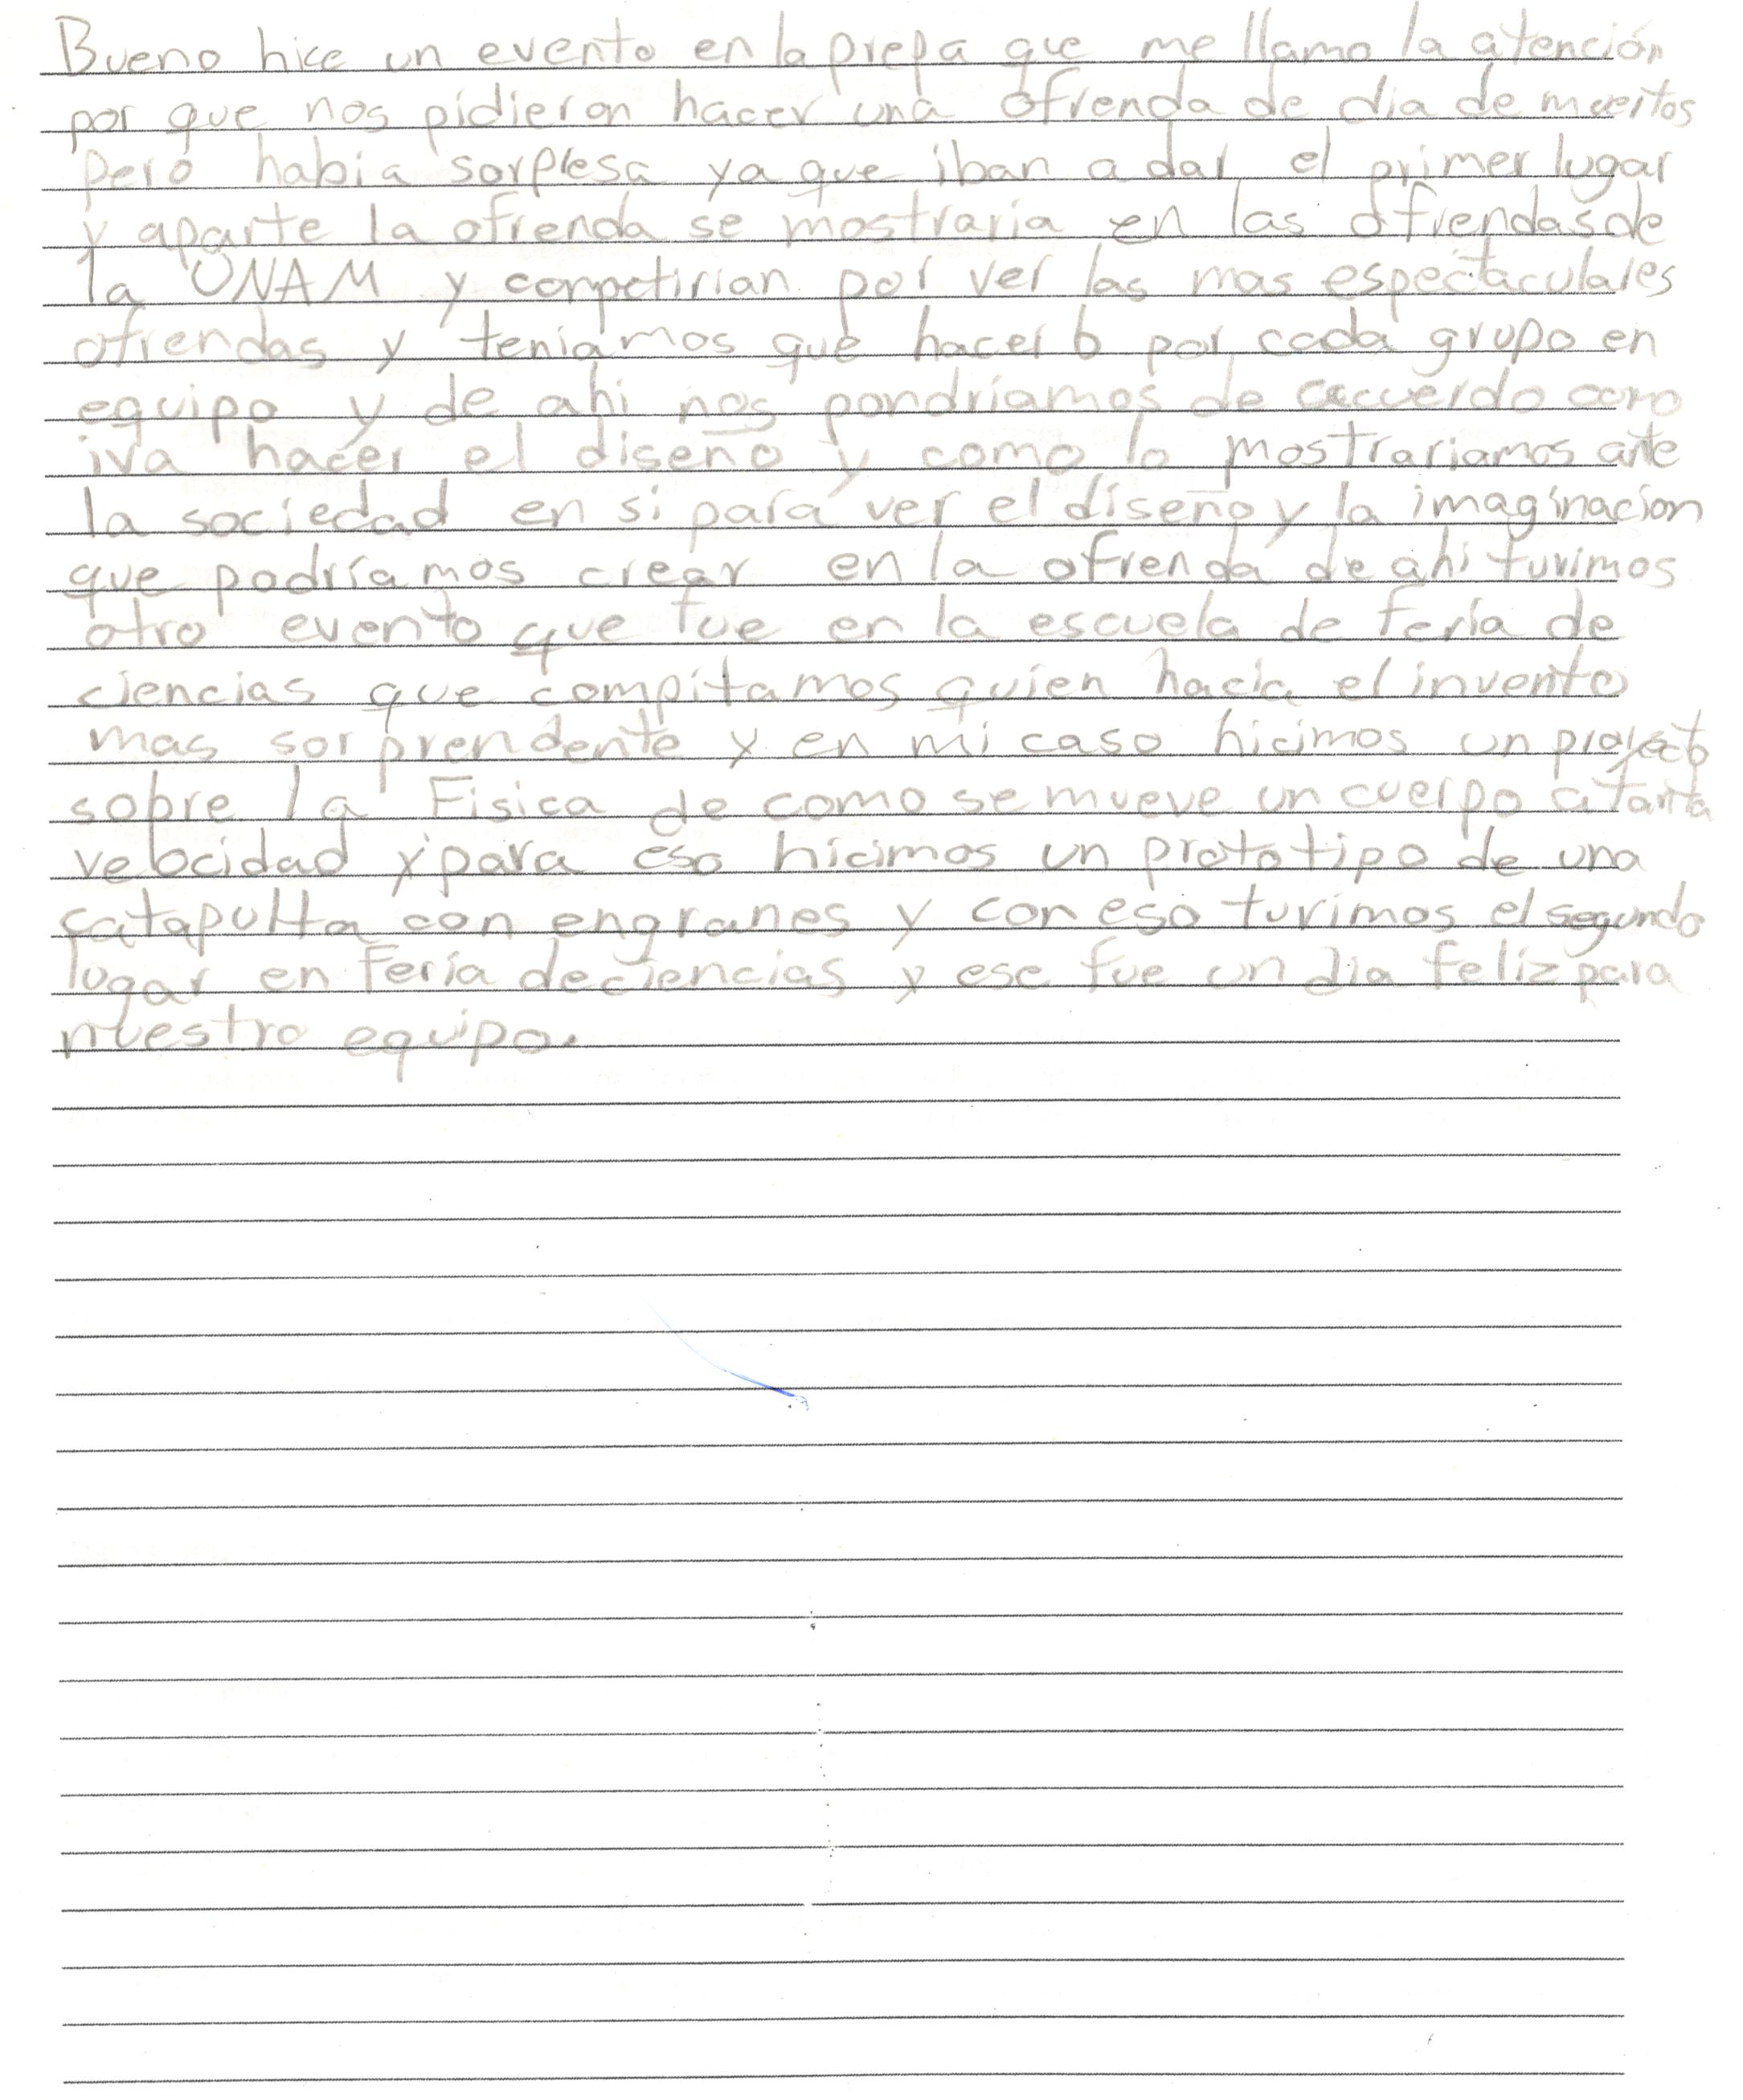 Bueno hice un evento en la prepa que me llamo la atención
por que nos pidieron hacer una ofrenda de dia de muertos
pero habia sorplesa ya que iban a dar el primer lugar
y aparte la ofrenda se mostraria en las ofrendas de
la UNAM y competirian por ver las mas espectaculares
ofrendas y teniamos que hacer 6 por cada grupo en
equipo y de ahi nos pondríamos de acuerdo como
iva hacer el diseño y como lo mostrariamos ante
la sociedad en si para ver el diseño y la imaginacion
que podríamos crear en la ofrenda de ahi tuvimos
otro evento que fue en la escuela de feria de
ciencias que compitamos quien hacia el invento
mas sorprendente y en mi caso hicimos un proyecto
sobre la Fisica de como se mueve un cuerpo a tanta
velocidad y para eso hicimos un prototipo de una
catapulta con engranes y con eso tuvimos el segundo
lugar en Feria de ciencias y ese fue un dia feliz para
nuestro equipo.